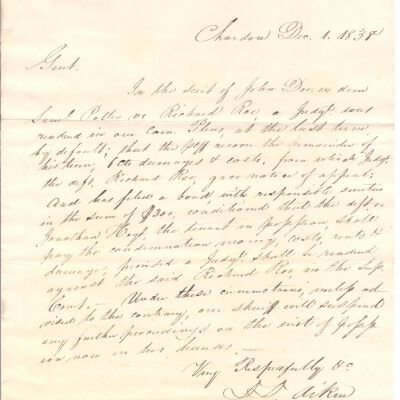 Chardon Dec. 1. 1838
Gent.
In the suit of John Doe, ex dem
Saml. Potter vs Richard Roe, a Judgt. was
rendered in our Com. Pleas, at the last term,
by default; that the Plff recover the remainder of
his term, 6 cts damages & costs, from which Judgt.
the deft, Richard Roe, gave notice of appeal;
And has filed a bond with responsible sureties
in the sum of $300, conditioned that the deft or
Jonathan Hoyt, the tenant in possession, shall
pay the condemnation money, costs, rents &
damages, provided a Judgt. shall be rendered
against the said Richard Roe, in the Sup.
Court. – Under these circumstances, unless ad
vised to the contrary, our sheriff will suspend
any further proceedings on the writ of posse
ion now in his hands. –
Very Respectfully &c
Aiken